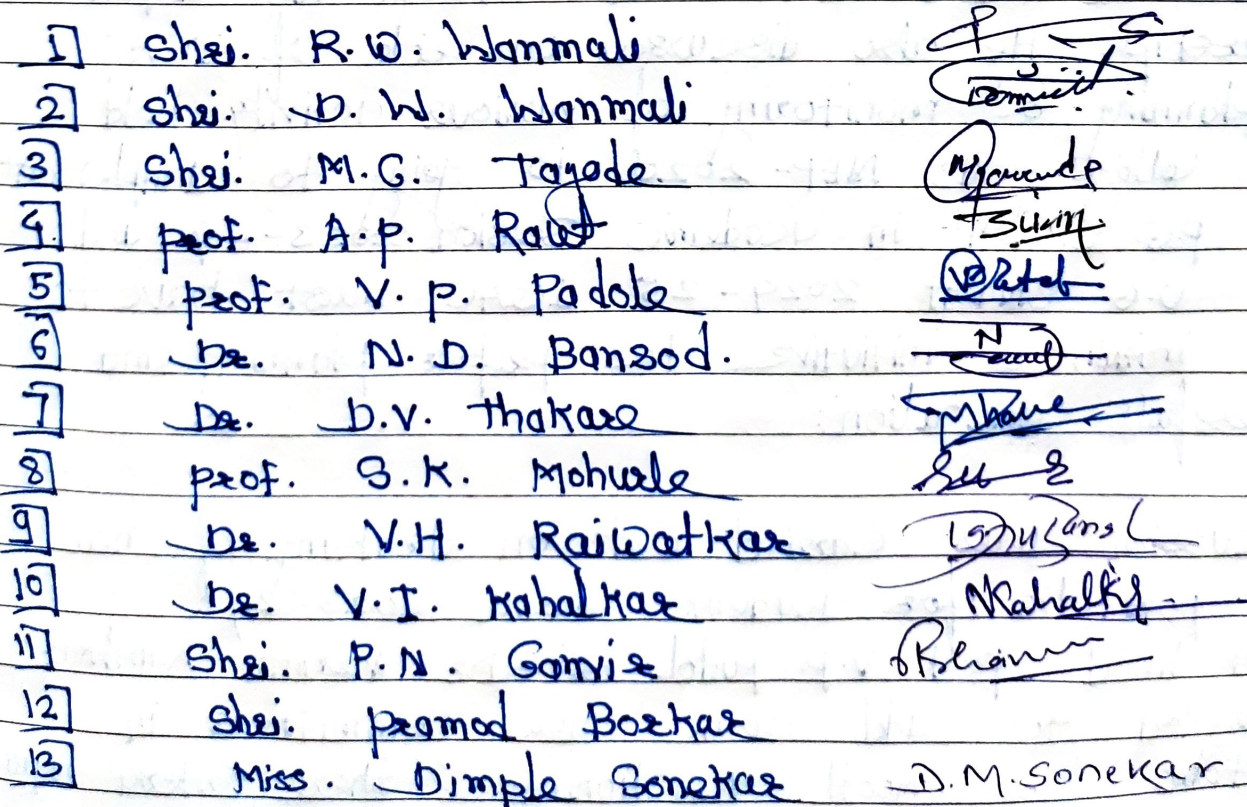 1] Shri. R. W. Wanmali
2] Shri. D. W. Wanmali
3] Shri. M. G. Tagode
4.] prof. A. P. Raut
5] prof. V. P. Padole
6] Dr. N. D. Bansod.
7] Dr. D. V. Thakare
8] prof. S. K. Mohurle
9] Dr. V. H. Raiwatkar
10] Dr. V. I. Kahalkar
11] Shri. P. N. Ganvir
12] Shri. Pramod Borkar
13] Miss. Dimple Sonekar D. M. Sonekar